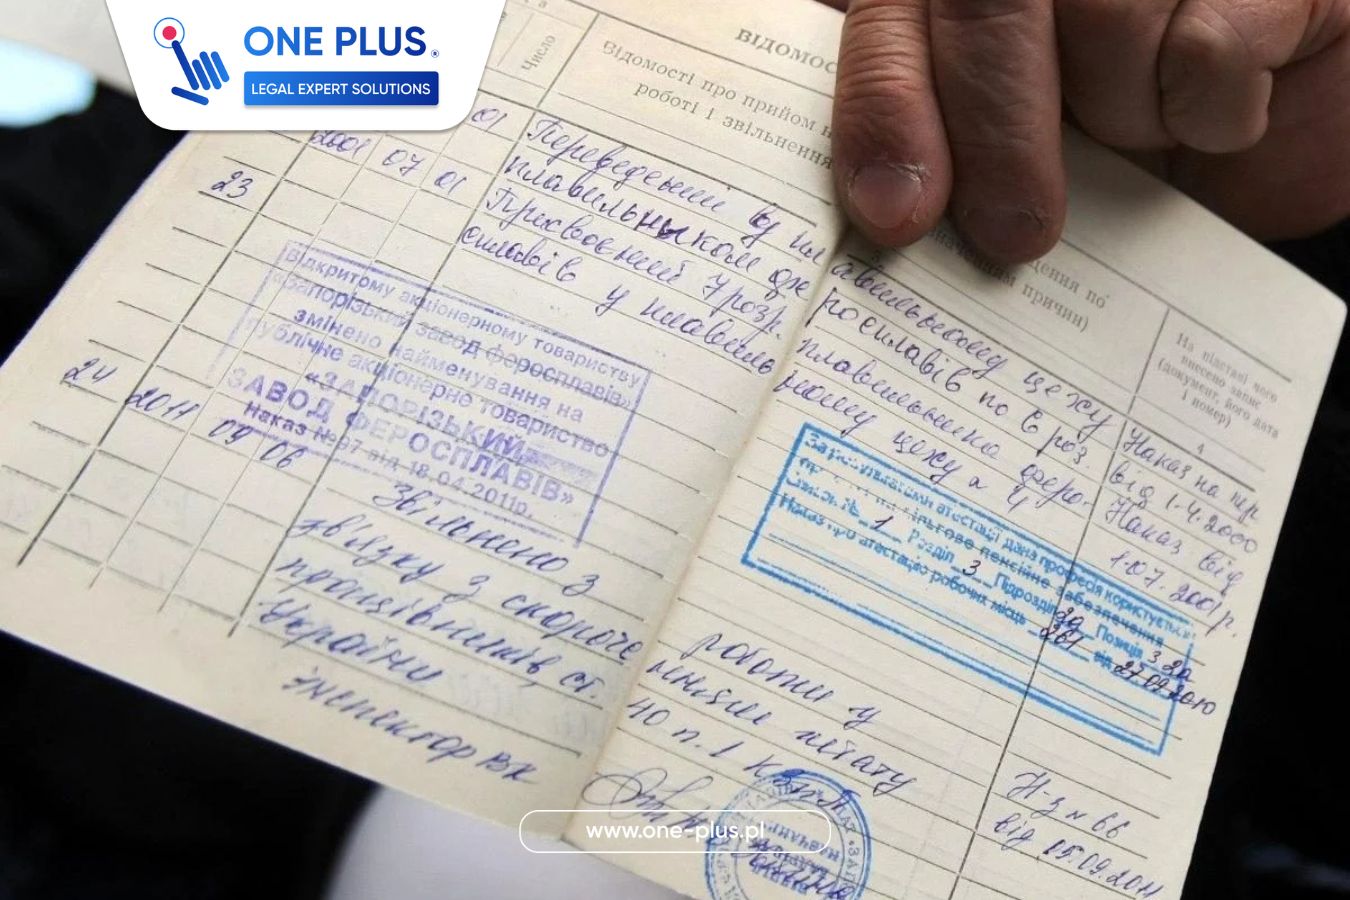 ONE PLUS®
LEGAL EXPERT SOLUTIONS
Число
ВІДОМОС
Відомості про прийом н
роботі і звільнення
дення по
значенням причин)
На підставі чого
внесено запис
(документ, його дата
і номер)
4
01
2001 07 01
23
Переведений у пл авильному цеху
плавильником фе росплавів по 6 роз.
Присвоєний 7 розр. плавильника феро-
сплавів у плавиль ному цеху № 4
Наказ на пр
від 1.4.2000
Наказ від
1.07.2001 р.
Відкритому акціонерному товариству
«Запорізький завод феросплавів»
змінено найменування на
публічне акціонерне товариство
«ЗАПОРІЗЬКИЙ
ЗАВОД ФЕРОСПЛАВІВ»
Наказ №97 від 18.04.2011р.
За результатами атестації дана професія користується
пільгове пенсійне забезпечення
Список № 1 Розділ 3 Підрозділ Позиція
Наказ про атестацію робочих місць від
24 2011 09 06
Звільнено з роботи у
зв'язку з скороче нням штату
працівників ст. 40 п. 1 КЗпП
України
Інспектор ВК
Н-з № 66
від 15.09.2011
www.one-plus.pl